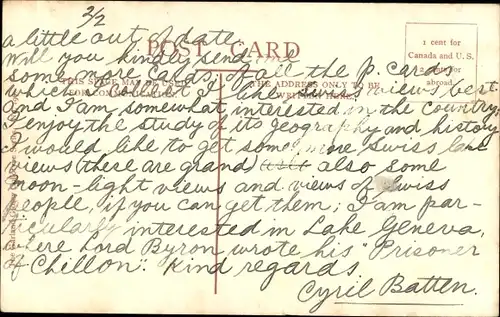 2/2
a little out of date.
POST CARD
1 cent for
Canada and U.S.
2 cents for
abroad
Will you kindly send
some more cards, of all the p. cards
THIS SPACE MAY BE
THE ADDRESS ONLY TO BE
WRITTEN HERE
which I collect I like views best
and I am somewhat interested in the country,
I enjoy the study of its geography and history
I would like to get some more Swiss lake
views (these are grand) also some
moon-light views and views of Swiss
people, if you can get them; I am par-
ticularly interested in Lake Geneva,
where Lord Byron wrote his "Prisoner
of Chillon". Kind regards.
Cyril Batten.